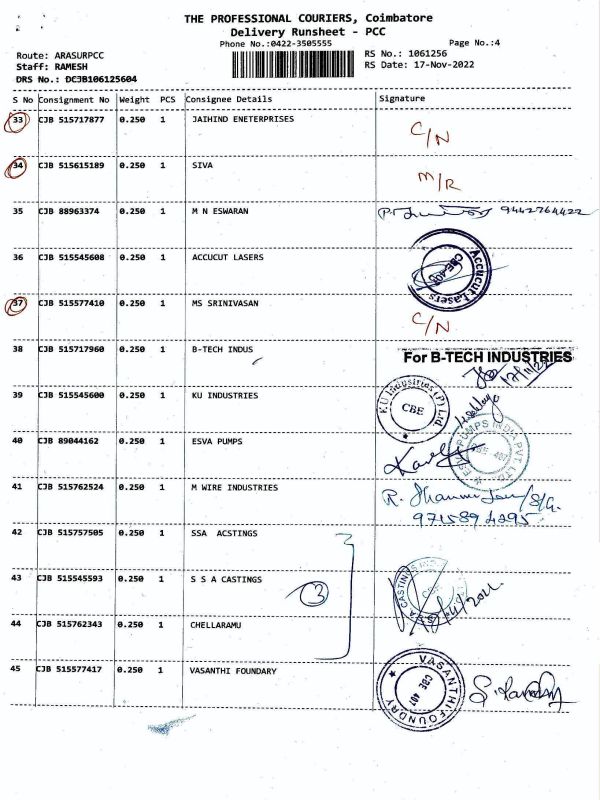 THE PROFESSIONAL COURIERS, Coimbatore
Delivery Runsheet - PCC
Phone No.:0422-3505555
Page No.:4
Route: ARASURPCC
RS No.: 1061256
Staff: RAMESH
RS Date: 17-Nov-2022
DRS No.: DCJB106125604
S No Consignment No Weight PCS Consignee Details Signature
33 CJB 515717877 0.250 1 JAIHIND ENETERPRISES C/N
34 CJB 515615189 0.250 1 SIVA M/R
35 CJB 88963374 0.250 1 M N ESWARAN 9442764422
36 CJB 515545608 0.250 1 ACCUCUT LASERS
Accucut Lasers
37 CJB 515577410 0.250 1 MS SRINIVASAN C/N
38 CJB 515717960 0.250 1 B-TECH INDUS For B-TECH INDUSTRIES
39 CJB 515545600 0.250 1 KU INDUSTRIES
K.U Industries (P) Ltd CBE
40 CJB 89044162 0.250 1 ESVA PUMPS
ESVA PUMPS INDIA PVT. LTD
41 CJB 515762524 0.250 1 M WIRE INDUSTRIES R.
42 CJB 515757505 0.250 1 SSA ACSTINGS
43 CJB 515545593 0.250 1 S S A CASTINGS 3
44 CJB 515762343 0.250 1 CHELLARAMU
45 CJB 515577417 0.250 1 VASANTHI FOUNDARY
VASANTHI FOUNDRY CBE 407